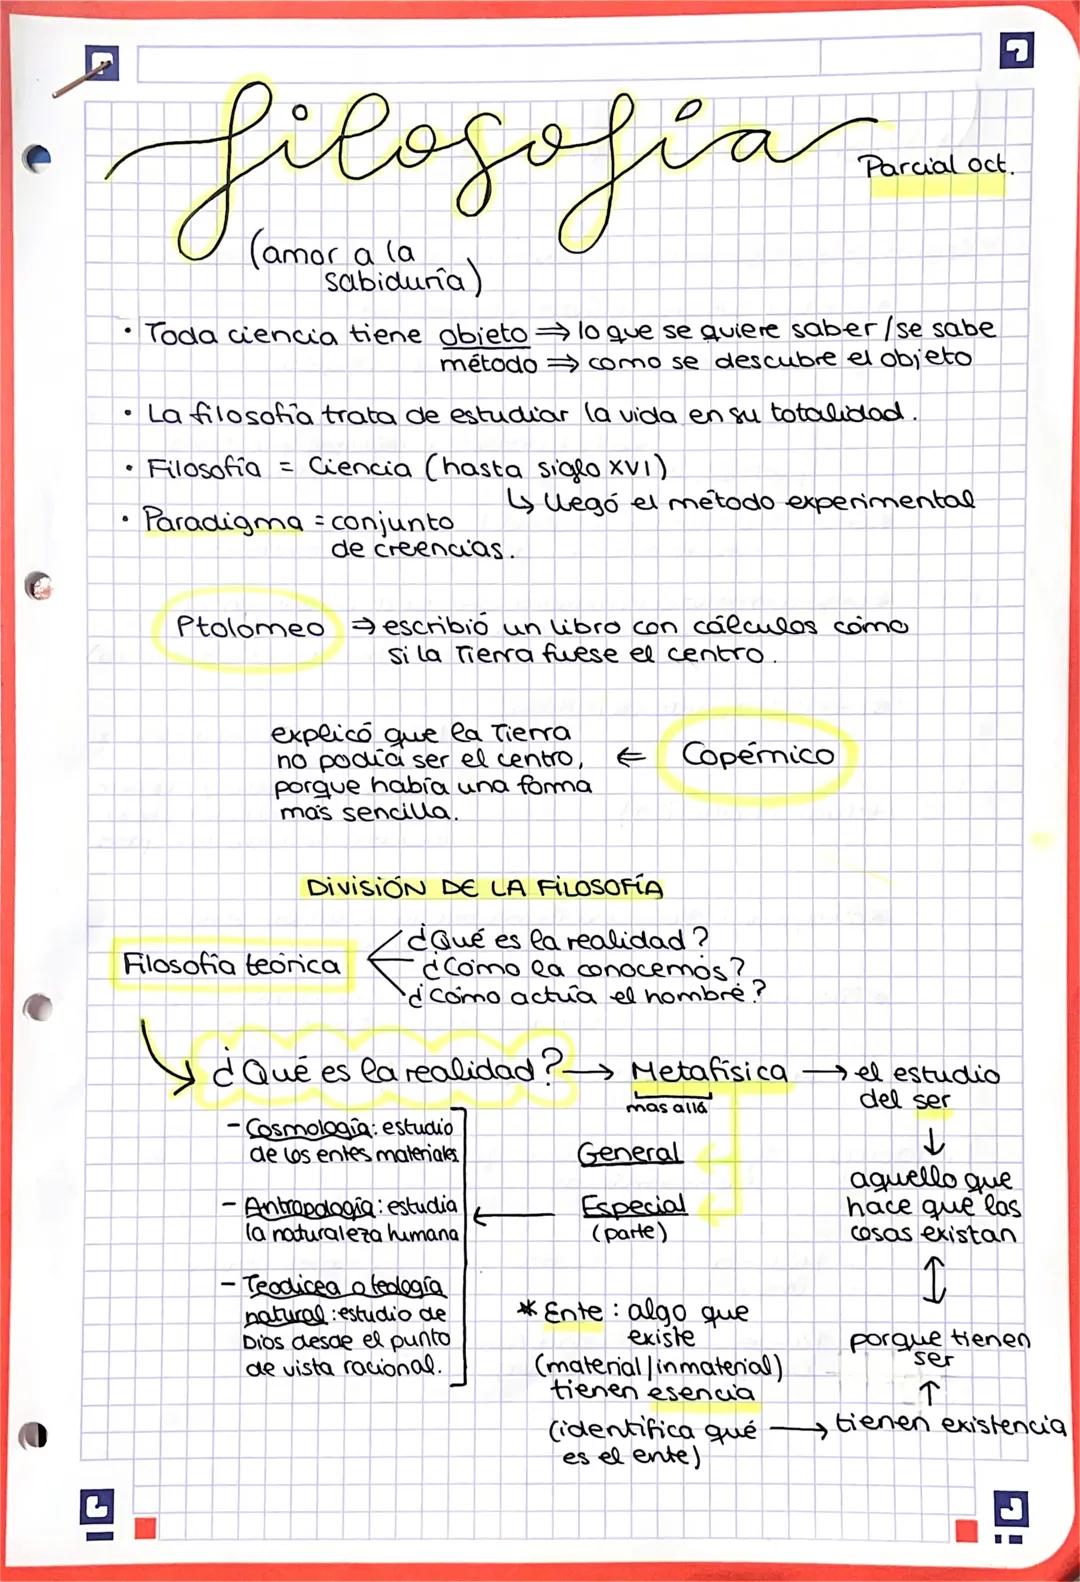 filosofía
Parcial oct.
(amor a la
sabiduría)
• Toda ciencia tiene objeto ⇒ lo que se quiere saber/se sabe
método ⇒ como se descubre el objeto
• La filosofía trata de estudiar la vida en su totalidad.
• Filosofía = Ciencia (hasta siglo XVI)
↳ llegó el método experimental
• Paradigma = conjunto
de creencias.
Ptolomeo ⇒ escribió un libro con cálculos como
si la Tierra fuese el centro.
explicó que la Tierra
no podía ser el centro, ⇐ Copérnico
porque había una forma
más sencilla.
DIVISIÓN DE LA FILOSOFÍA
¿Qué es la realidad?
Filosofía teórica
¿Cómo la conocemos?
¿Cómo actúa el hombre?
¿Qué es la realidad? → Metafísica → el estudio
del ser
mas allá
↓
- Cosmología: estudio
de los entes materiales
General
aquello que
hace que las
cosas existan
- Antropología: estudia
la naturaleza humana
← Especial
(parte)
↕
- Teodicea o teología
natural: estudio de
Dios desde el punto
de vista racional.
* Ente: algo que
existe
(material/inmaterial)
tienen esencia
(identifica qué → tienen existencia
es el ente)
↑
porque tienen
ser